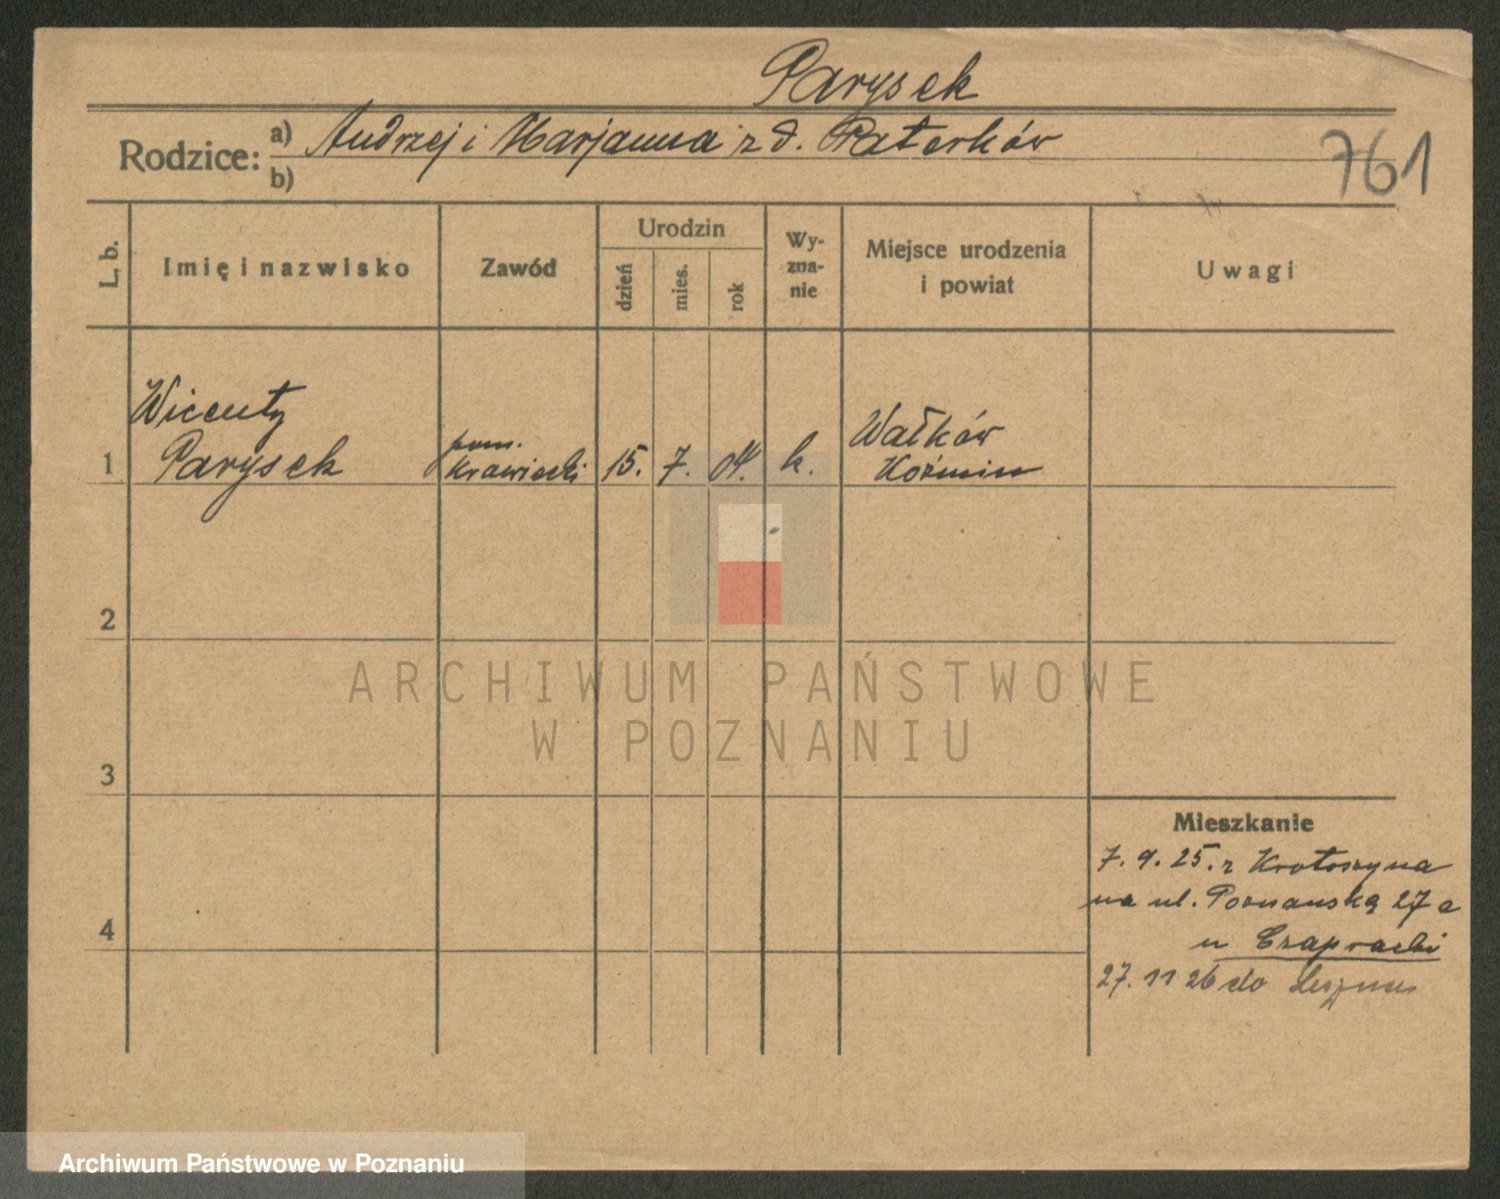 Parysek
Rodzice: a) Andrzej i Marjanna z d. Paterków
b)
761
L. b.
Imię i nazwisko
Zawód
Urodzin
dzień
mies.
rok
Wy-
zna-
nie
Miejsce urodzenia
i powiat
Uwagi
1
Wicenty
Parysek
pom.
krawiecki
15. 7. 04. k.
Wałków
Koźmin
2
3
4
ARCHIWUM PAŃSTWOWE
W POZNANIU
Mieszkanie
7. 9. 25. z Krotoszyna
na ul. Poznańską 27 a
u Czapracki
27. 11 26 do
Archiwum Państwowe w Poznaniu